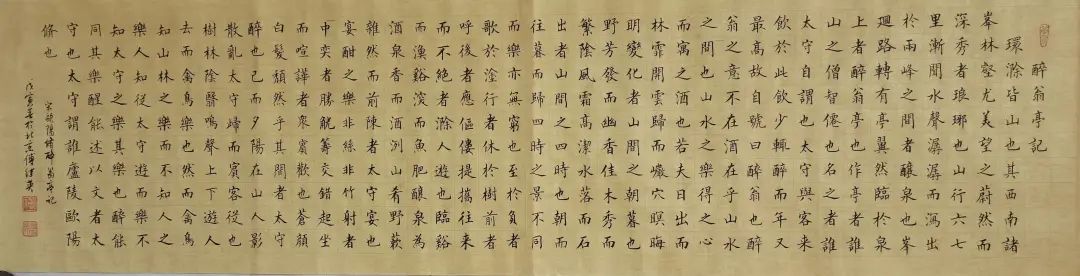 醉翁亭記
環滁皆山也其西南諸
峯林壑尤美望之蔚然而
深秀者琅琊也山行六七
里漸聞水聲潺潺而瀉出
於兩峰之間者釀泉也峯
迴路轉有亭翼然臨於泉
上者醉翁亭也作亭者誰
山之僧智僊也名之者誰
太守自謂也太守與客來
飲於此飲少輒醉而年又
最高故自號曰醉翁也醉
翁之意不在酒在乎山水
之間也山水之樂得之心
而寓之酒也若夫日出而
林霏開雲歸而巖穴暝晦
明變化者山間之朝暮也
野芳發而幽香佳木秀而
繁陰風霜高潔水落而石
出者山間之四時也朝而
往暮而歸四時之景不同
而樂亦無窮也至於負者
歌於塗行者休於樹前者
呼後者應傴僂提攜往來
而不絕者滁人遊也臨谿
而漁谿深而魚肥釀泉為
酒泉香而酒洌山肴野蔌
雜然而前陳者太守宴也
宴酣之樂非絲非竹射者
中奕者勝觥籌交錯起坐
而諠譁者眾賓歡也蒼顏
白髮頹然乎其間者太守
醉也已而夕陽在山人影
散亂太守歸而賓客從也
樹林陰翳鳴聲上下遊人
去而禽鳥樂也然而禽鳥
知山林之樂而不知人之
樂人知從太守遊而樂不
知太守之樂其樂也醉能
同其樂醒能述以文者太
守也太守謂誰廬陵歐陽
脩也
宋歐陽脩醉翁亭記
戊寅於北京